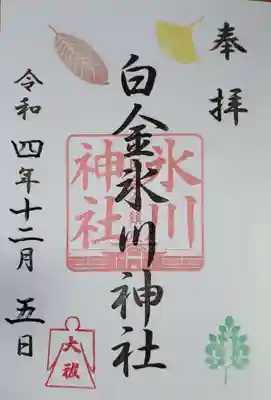 奉拝
白金氷川神社
氷川神社
令和四年十二月五日
大祓